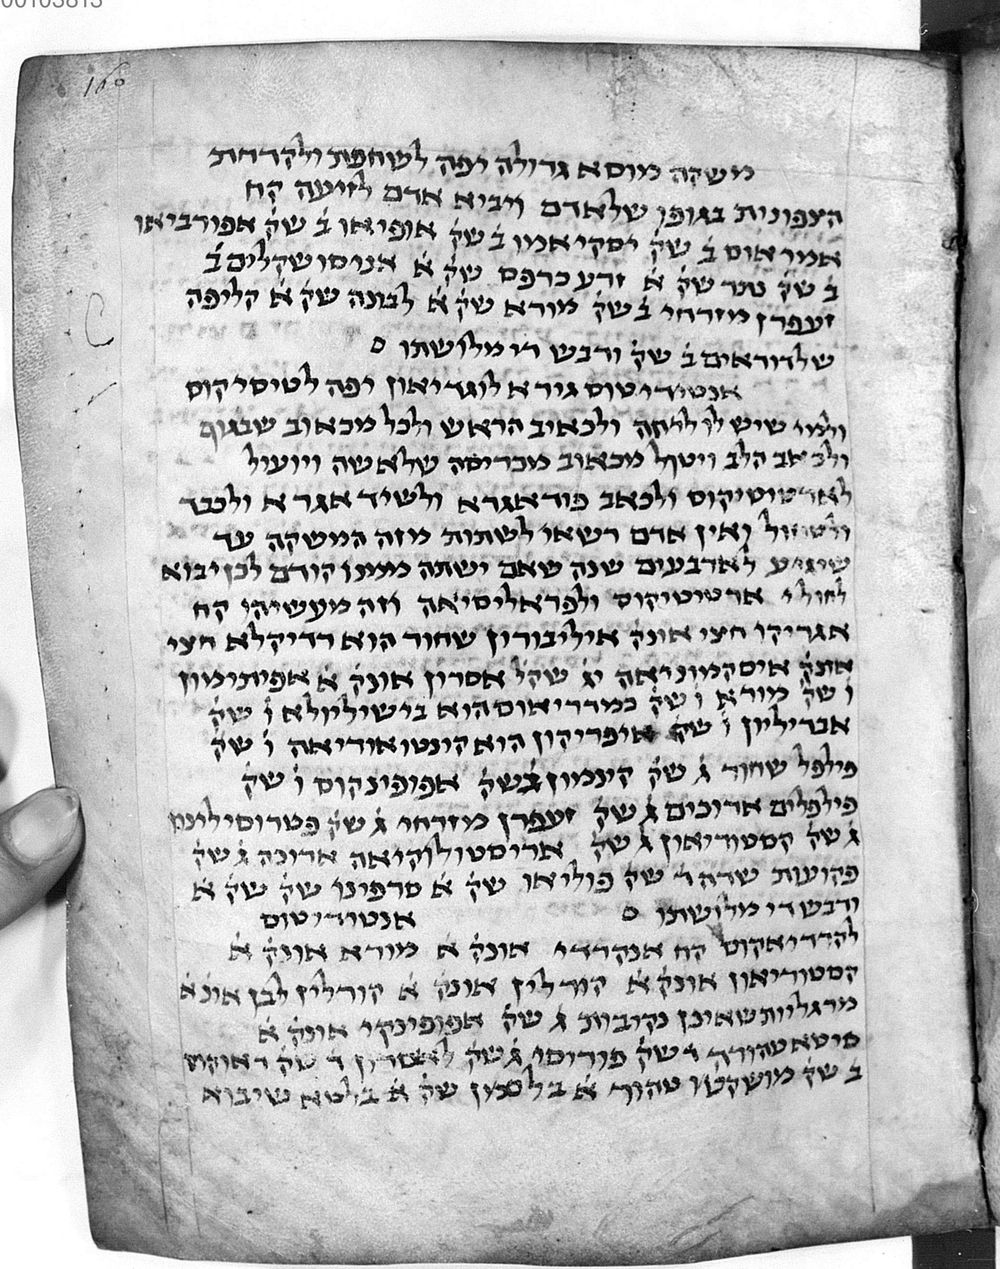 00103813
160
משקה מוסא גדולה יפה לשחפת ולקדחת
הצפונית בגופן שלאדם ויביא אדם לזיעה קח
אמיאוס ב׳ שק׳ יסקיאמו ב׳ שק׳ אופיאו ב׳ שק׳ אפורביאו
ב׳ שק׳ שק׳ א׳ זרע כרפס שק׳ א׳ אניסו שקלים ב׳
זעפרן מזרחי ב׳ שק׳ מורא שק׳ א׳ לבונה שק׳ א׳ קליפה
שלדוראים ב׳ שק׳ ודבש די מלושתו
אנטידיטוס גירא לוגדיאון יפה לטיסיקוס
ולמי שיש לו ולכאיב הראש ולכל מכאוב שבגוף
ולכאב הלב ויטול מכאוב מכריסה שלאשה ויועיל
לארטיטיקוס ולכאב פודאגרא ולשידאגרא ולכבד
ולטחול ואין אדם רשאי לשתות מזה המשקה עד
שיגיע לארבעים שנה שאם ישתה ממנו קודם לכן יבוא
לחולי ארטיטיקוס ולפראליסיאה וזה מעשיהו קח
אגריקו חצי אונק׳ איליבורון שחור הוא רדיקלא חצי
אונק׳ איסקמוניאה יג׳ שקל אסרון אונק׳ א׳ אפיתימון
ו׳ שק׳ מורא ו׳ שק׳ כמדריאוס הוא בישיליולא ו׳ שק׳
אבריליון ו׳ שק׳ איפריקון הוא קונטואודיאה ו׳ שק׳
פילפל שחור ג׳ שק׳ קינמון ג׳ שק׳ אפופינקוס ו׳ שק׳
פילפלים ארוכים ג׳ שק׳ זעפרן מזרחי ג׳ שק׳ פטרוסילינון
ג׳ שק׳ קסטוריאון ג׳ שק׳ אריסטולוקיאה ארוכה ג׳ שק׳
פקועות שדה ד׳ שק׳ פוליאו שק׳ א׳ סרפינו שק׳ שק׳ א׳
ודבש די מלושתו אנטידיטוס
לקרדיאקוס קח אנקרדי אונק׳ א׳ מורא אונק׳ א׳
קסטוריאון אונק׳ א׳ קורלין אונק׳ א׳ קורלין לבן אונ׳ א׳
מרגליות שאינן נקובות ג׳ שק׳ אפופינקי אונק׳ א׳
טהורה ד׳ שק׳ פוריסי ג׳ שק׳ לאסרון ד׳ שק׳
ב׳ שק׳ מושקטו טהור א׳ בלסמון שק׳ א׳ בלטא שיבוא